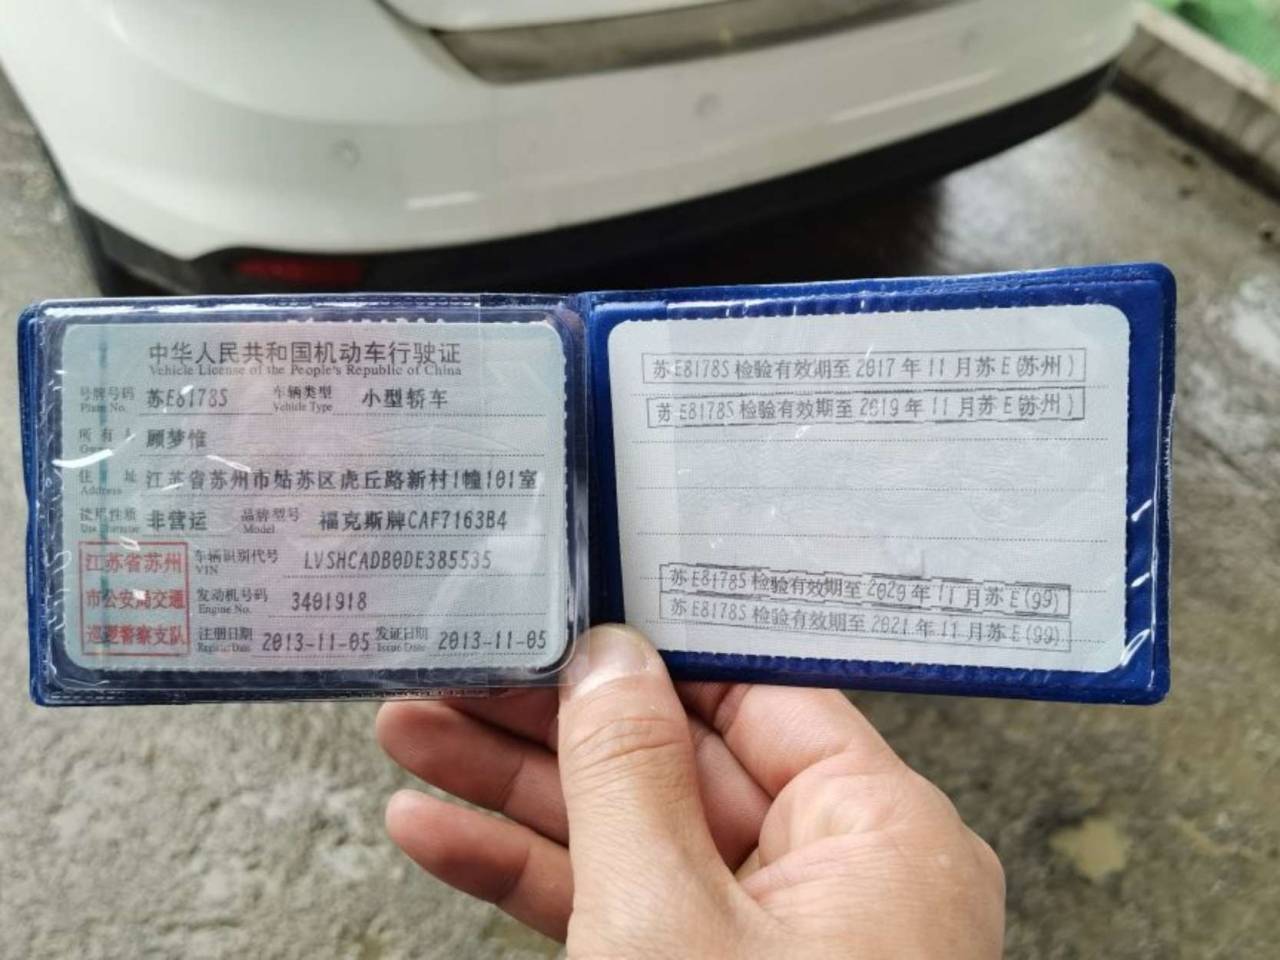 中华人民共和国机动车行驶证
Vehicle License of the People's Republic of China
号牌号码 苏E8178S 车辆类型 小型轿车
Plate No. Vehicle Type
所有人 顾梦惟
住址 江苏省苏州市姑苏区虎丘路新村1幢101室
Address
使用性质 非营运 品牌型号 福克斯牌CAF7163B4
Use Character Model
江苏省苏州
市公安局交通
巡逻警察支队
车辆识别代号 LVSHCADB0DE385535
VIN
发动机号码 3401918
Engine No.
注册日期 2013-11-05 发证日期 2013-11-05
Register Date Issue Date
苏E8178S检验有效期至2017年11月苏E(苏州)
苏E8178S检验有效期至2019年11月苏E(苏州)
苏E8178S检验有效期至2020年11月苏E(99)
苏E8178S检验有效期至2021年11月苏E(99)